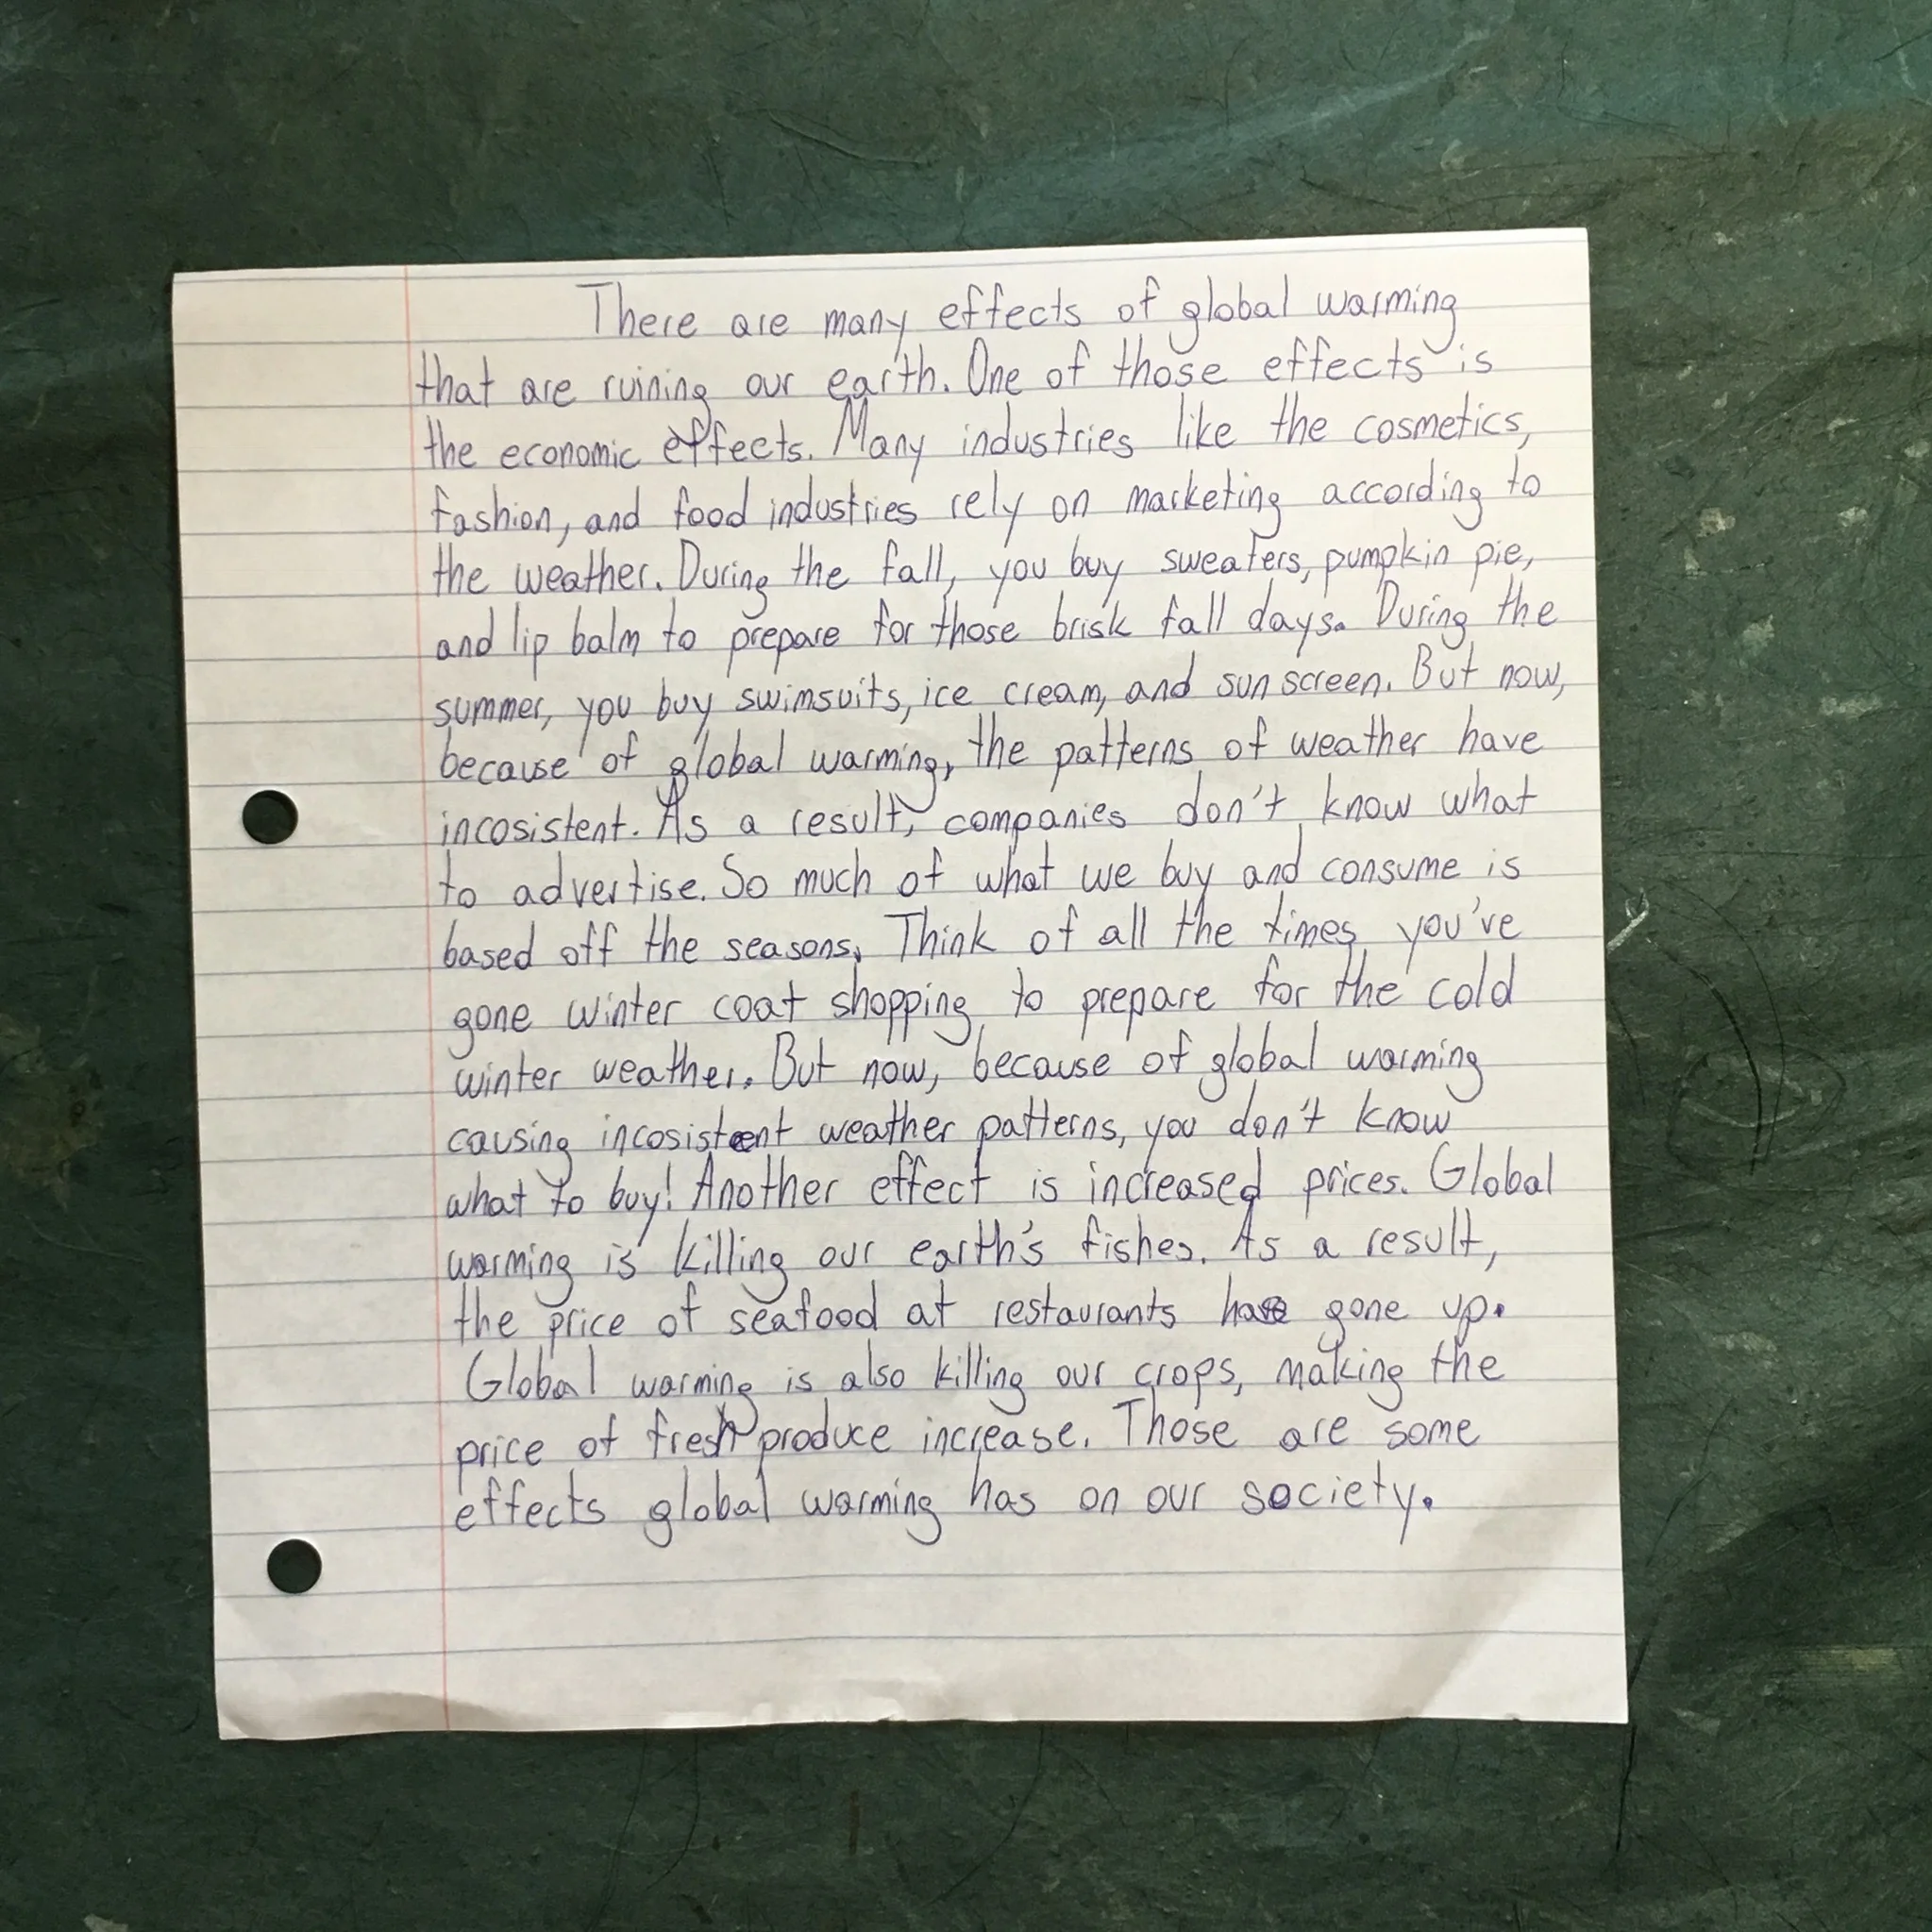 There are many effects of global warming
that are ruining our earth. One of those effects is
the economic effects. Many industries like the cosmetics,
fashion, and food industries rely on marketing according to
the weather. During the fall, you buy sweaters, pumpkin pie,
and lip balm to prepare for those brisk fall days. During the
summer, you buy swimsuits, ice cream, and sunscreen. But now,
because of global warming, the patterns of weather have
incosistent. As a result, companies don't know what
to advertise. So much of what we buy and consume is
based off the seasons. Think of all the times you've
gone winter coat shopping to prepare for the cold
winter weather. But now, because of global warming
causing incosistent weather patterns, you don't know
what to buy! Another effect is increased prices. Global
warming is killing our earth's fishes. As a result,
the price of seafood at restaurants have gone up.
Global warming is also killing our crops, making the
price of fresh produce increase. Those are some
effects global warming has on our society.